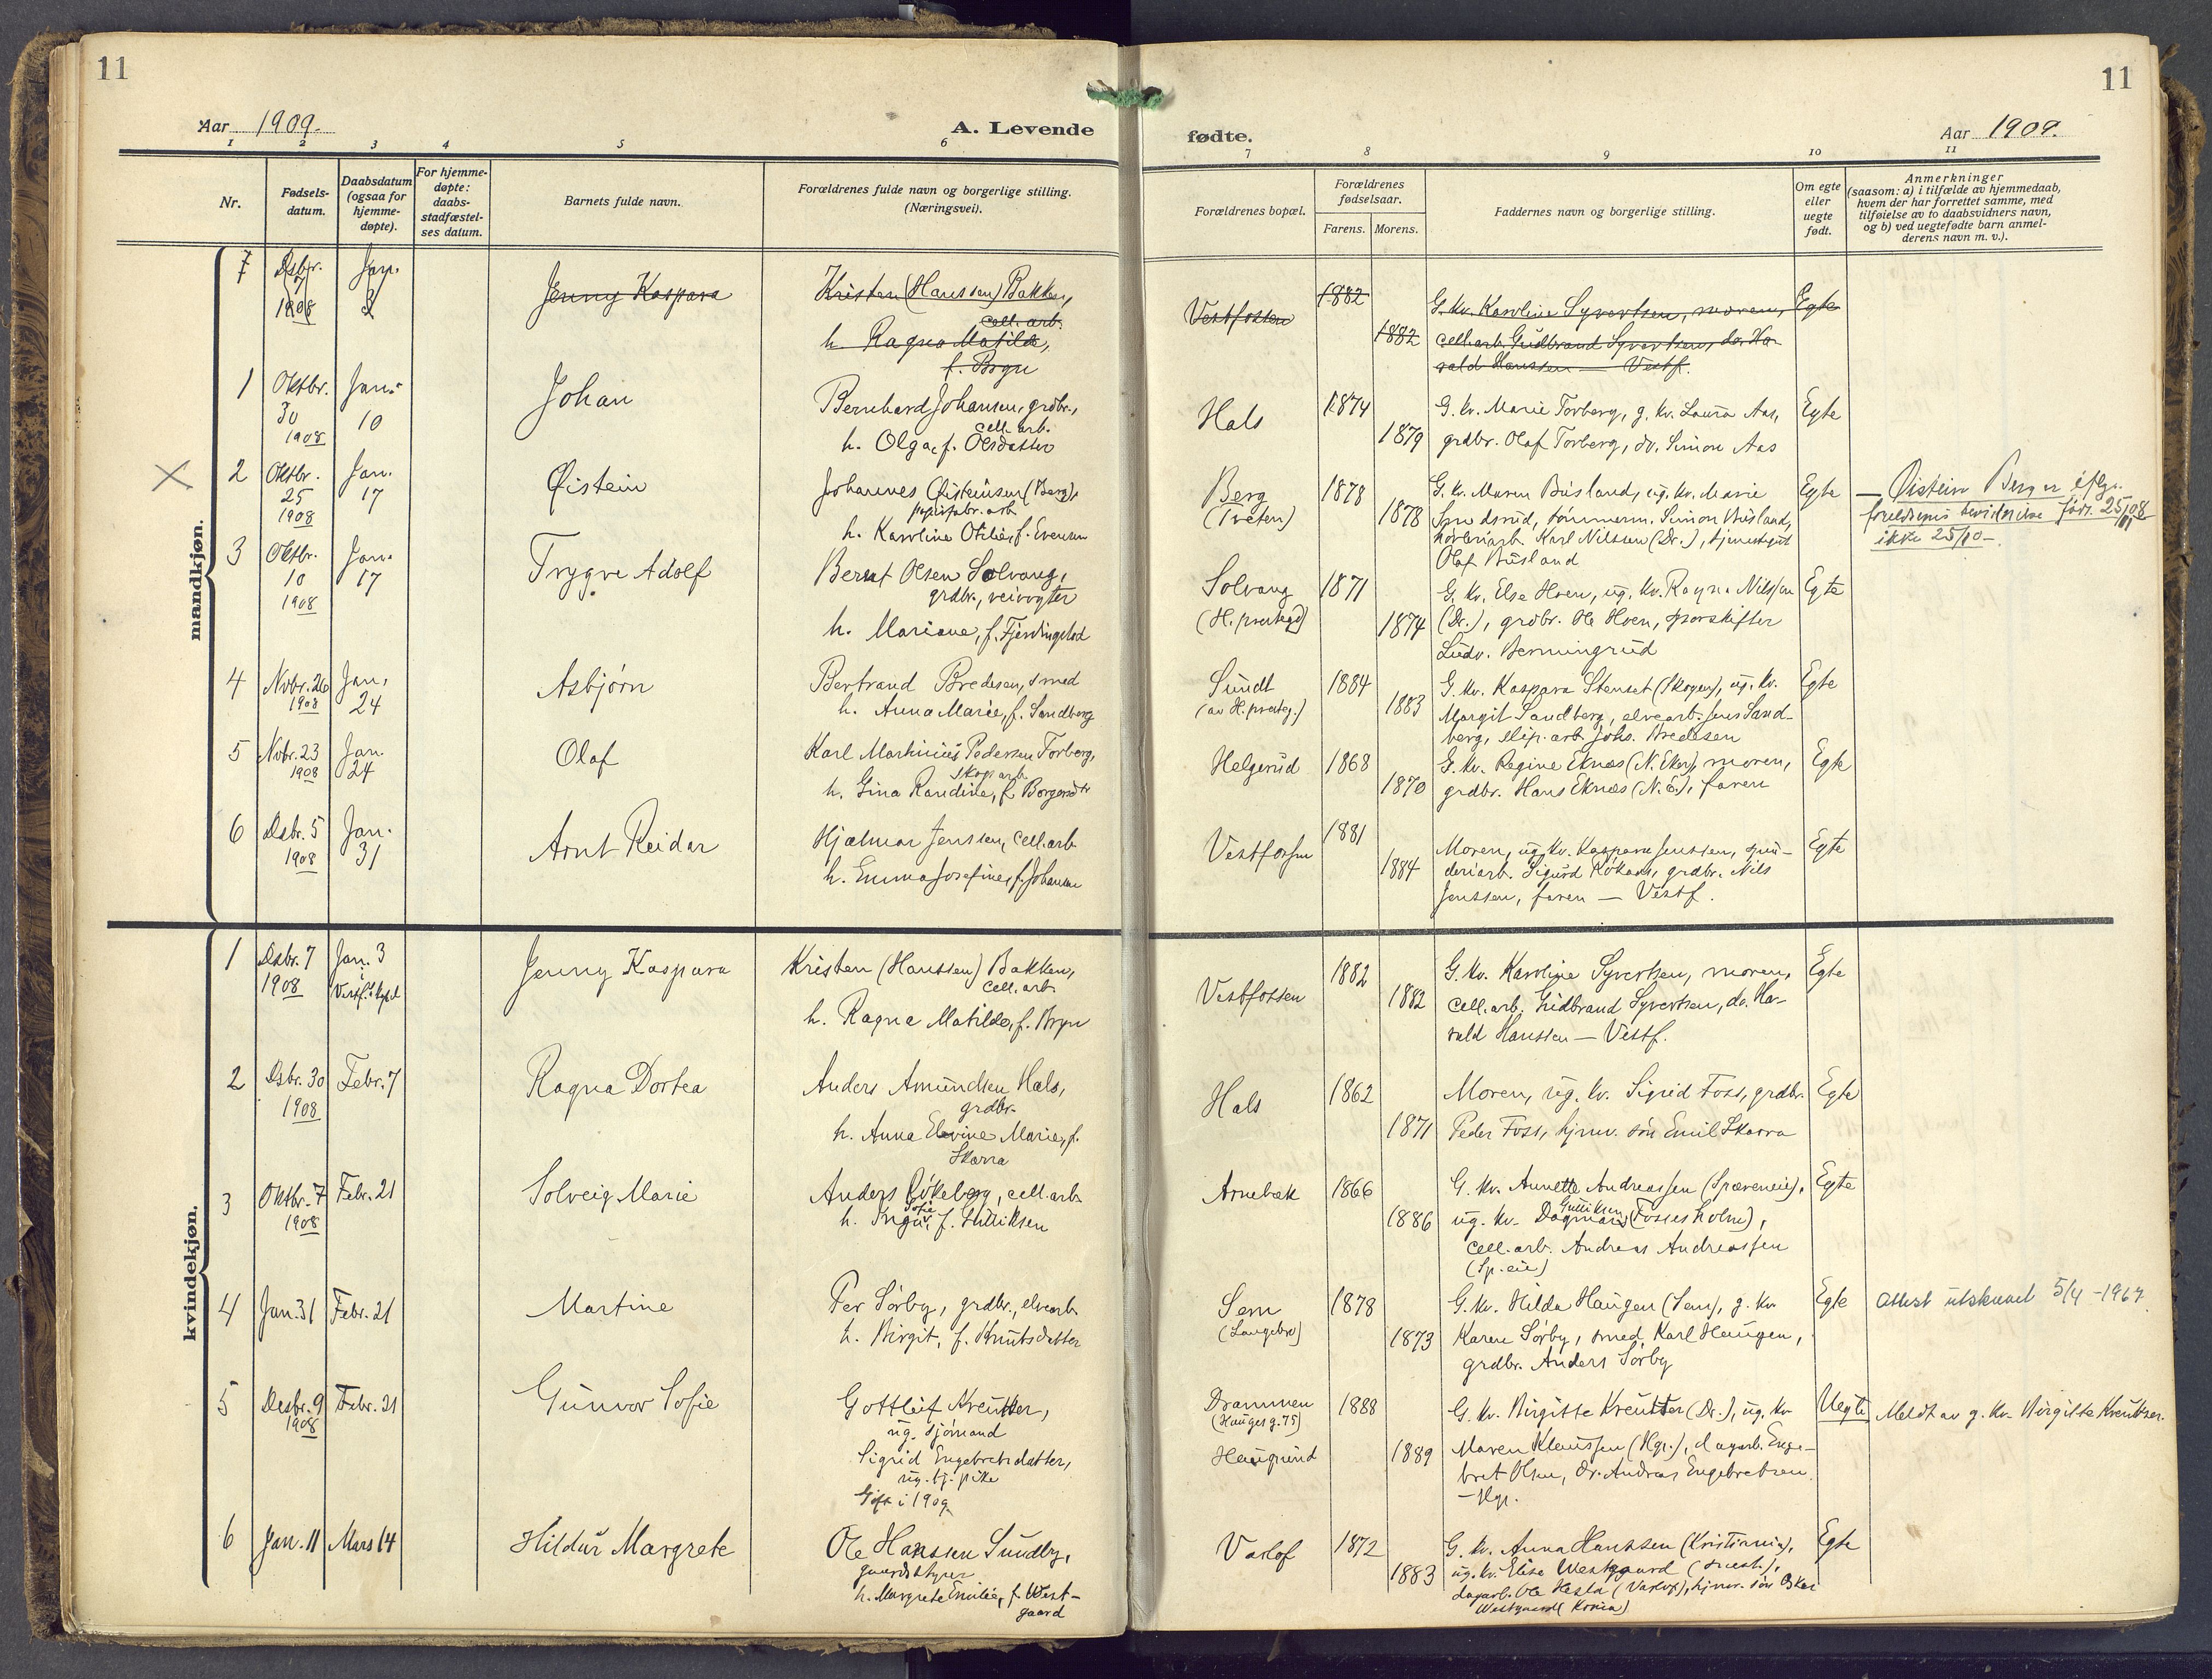 11
11
Aar 1909.
A. Levende
fødte.
Aar 1909.
1 2 3 4 5 6
7 8 9 10 11
Nr.
Fødsels-
datum.
Daabsdatum
(ogsaa for
hjemme-
døpte).
For hjemme-
døpte:
daabs-
stadfæstel-
ses datum.
Barnets fulde navn.
Forældrenes fulde navn og borgerlige stilling.
(Næringsvei).
Forældrenes bopæl.
Forældrenes
fødselsaar.
Farens. Morens.
Faddernes navn og borgerlige stilling.
Om egte
eller
uegte
født.
Anmerkninger
(saasom: a) i tilfælde av hjemmedaab,
hvem der har forrettet samme, med
tilføielse av to daabsvidners navn,
og b) ved uegtefødte barn anmel-
derens navn m. v.).
mandkjøn.
Dsbr.
7
1908
Jan.
3
Jenny Kaspara
Kristen (Hanssen) Bakken,
cell. arb.
h. Ragna Matilde,
f. Bryn
Vestfossen
1882
1882
G. kv. Karoline Syvertsen, moren,
cell. arb. Gudbrand Syvertsen, do. Ha-
rald Hanssen — Vestf.
Egte
1
Oktbr.
30
1908
Jan.
10
Johan
Bernhard Johansen, grdbr.,
cell. arb.
h. Olga, f. Olsdatter
Hals
1874
1879
G. kv. Marie Torberg, g. kv. Laura Aas,
grdbr. Olaf Torberg, do. Simon Aas
Egte
X
2
Oktbr.
25
1908
Jan.
17
Øistein
Johannes Øisteinsen (Berg),
papirfabr. arb.
h. Karoline Otilie, f. Evensen
Berg
(Tveten)
1878
1878
G. kv. Maren Busland, ug. kv. Marie
Smedsrud, tømmerm. Simon Busland,
høveriarb. Karl Nilssen (Dr.), tjenestegut
Olaf Busland
Egte
— Øistein Berger iflg.
foreldrenes bevidnelse født 25/11 08
ikke 25/10 —.
3
Oktbr.
10
1908
Jan.
17
Trygve Adolf
Bernt Olsen Solvang,
grdbr., veivogter
h. Mariane, f. Fjerdingstad
Solvang
(H. prestegd)
1871
1874
G. kv. Else Hoen, ug. kv. Ragna Nilssen
(Dr.), grdbr. Ole Hoen, sporskifter
Ludv. Berningrud
Egte
4
Nvbr. 26
1908
Jan.
24
Asbjørn
Bertrand Bredesen, smed
h. Anna Marie, f. Sandberg
Sundt
(av H. presteg.)
1884
1883
G. kv. Kaspara Stenset (Skogen), ug. kv.
Margit Sandberg, elvearb. Jens Sand-
berg, slip. arb. Johs. Bredesen
Egte
5
Nvbr. 23
1908
Jan.
24
Olaf
Karl Martinius Pedersen Torberg,
skog. arb.
h. Gina Randine, f. Borgersdtr
Helgerud
1868
1870
G. kv. Regine Eknes (N. Eker), moren,
grdbr. Hans Eknes (N. E.), faren
Egte
6
Dsbr. 5
1908
Jan.
31
Arnt Reidar
Hjalmar Jenssen, cell. arb.
h. Emma Josefine, f. Johansen
Vestfossen
1881
1884
Moren, ug. kv. Kaspara Jenssen, spin-
deriarb. Sigurd Røkaas, grdbr. Nils
Jenssen, faren — Vestf.
Egte
kvindekjøn.
1
Dsbr. 7
1908
Jan. 3
i
Vestf. kpel
Jenny Kaspara
Kristen (Hanssen) Bakken,
cell. arb.
h. Ragna Matilde, f. Bryn
Vestfossen
1882
1882
G. kv. Karoline Syvertsen, moren,
cell. arb. Gudbrand Syvertsen, do. Ha-
rald Hanssen — Vestf.
Egte
2
Dsbr. 30
1908
Febr. 7
Ragna Dortea
Anders Amundsen Hals,
grdbr.
h. Anna Elevine Marie, f.
Skarra
Hals
1862
1871
Moren, ug. kv. Sigrid Foss, grdbr.
Peder Foss, hjmv. søn Emil Skarra
Egte
3
Oktbr. 7
1908
Febr. 21
Solveig Marie
Anders Røkeberg, cell. arb.
Sofie
h. Inga, f. Gulliksen
Arnebæk
1866
1886
G. kv. Annette Andreassen (Spæreneie),
Gulliksen
ug. kv. Dagmar (Fossesholm),
cell. arb. Andreas Andreassen
(Sp. eie)
Egte
4
Jan. 31
Febr. 21
Martine
Per Sørby, grdbr., elvearb.
h. Birgit, f. Knutsdatter
Sem
(Langebro)
1878
1873
G. kv. Hilda Haugen (Sem), g. kv.
Karen Sørby, smed Karl Haugen,
grdbr. Anders Sørby
Egte
Attest utskrevet 5/4 - 1967.
5
Desbr. 9
1908
Febr. 21
Gunvor Sofie
Gottleif Kreutter,
ug. sjømand
Sigrid Engebretsdatter,
ug. tj. pike
Gift i 1909
Drammen
(Hauges g. 75)
Haugrund
1888
1889
G. kv. Birgitte Kreutter (Dr.), ug. kv.
Maren Klaussen (Hgr.), dagarb. Enge-
bret Olsen, do. Andreas Engebretsen.
— Hgr.
Uegte
Meldt av g. kv. Birgitte Kreutter.
6
Jan. 11
Mars 14
Hildur Margrete
Ole Hanssen Sundby,
gaardsstyrer
h. Margrete Emilie, f. West-
gaard
Varlof
1872
1883
G. kv. Anna Hanssen (Kristiania),
ug. kv. Elise Westgaard (smest.),
dagarb. Ole Hesla (Varlof), hjmv. søn Oskar
Westgaard (Krania)
Egte